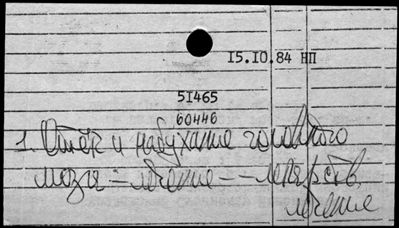 15.10.84 НП
51465
60446
1. Отёк и набухание головного
мозга – лечение – – лекарств.
лечение